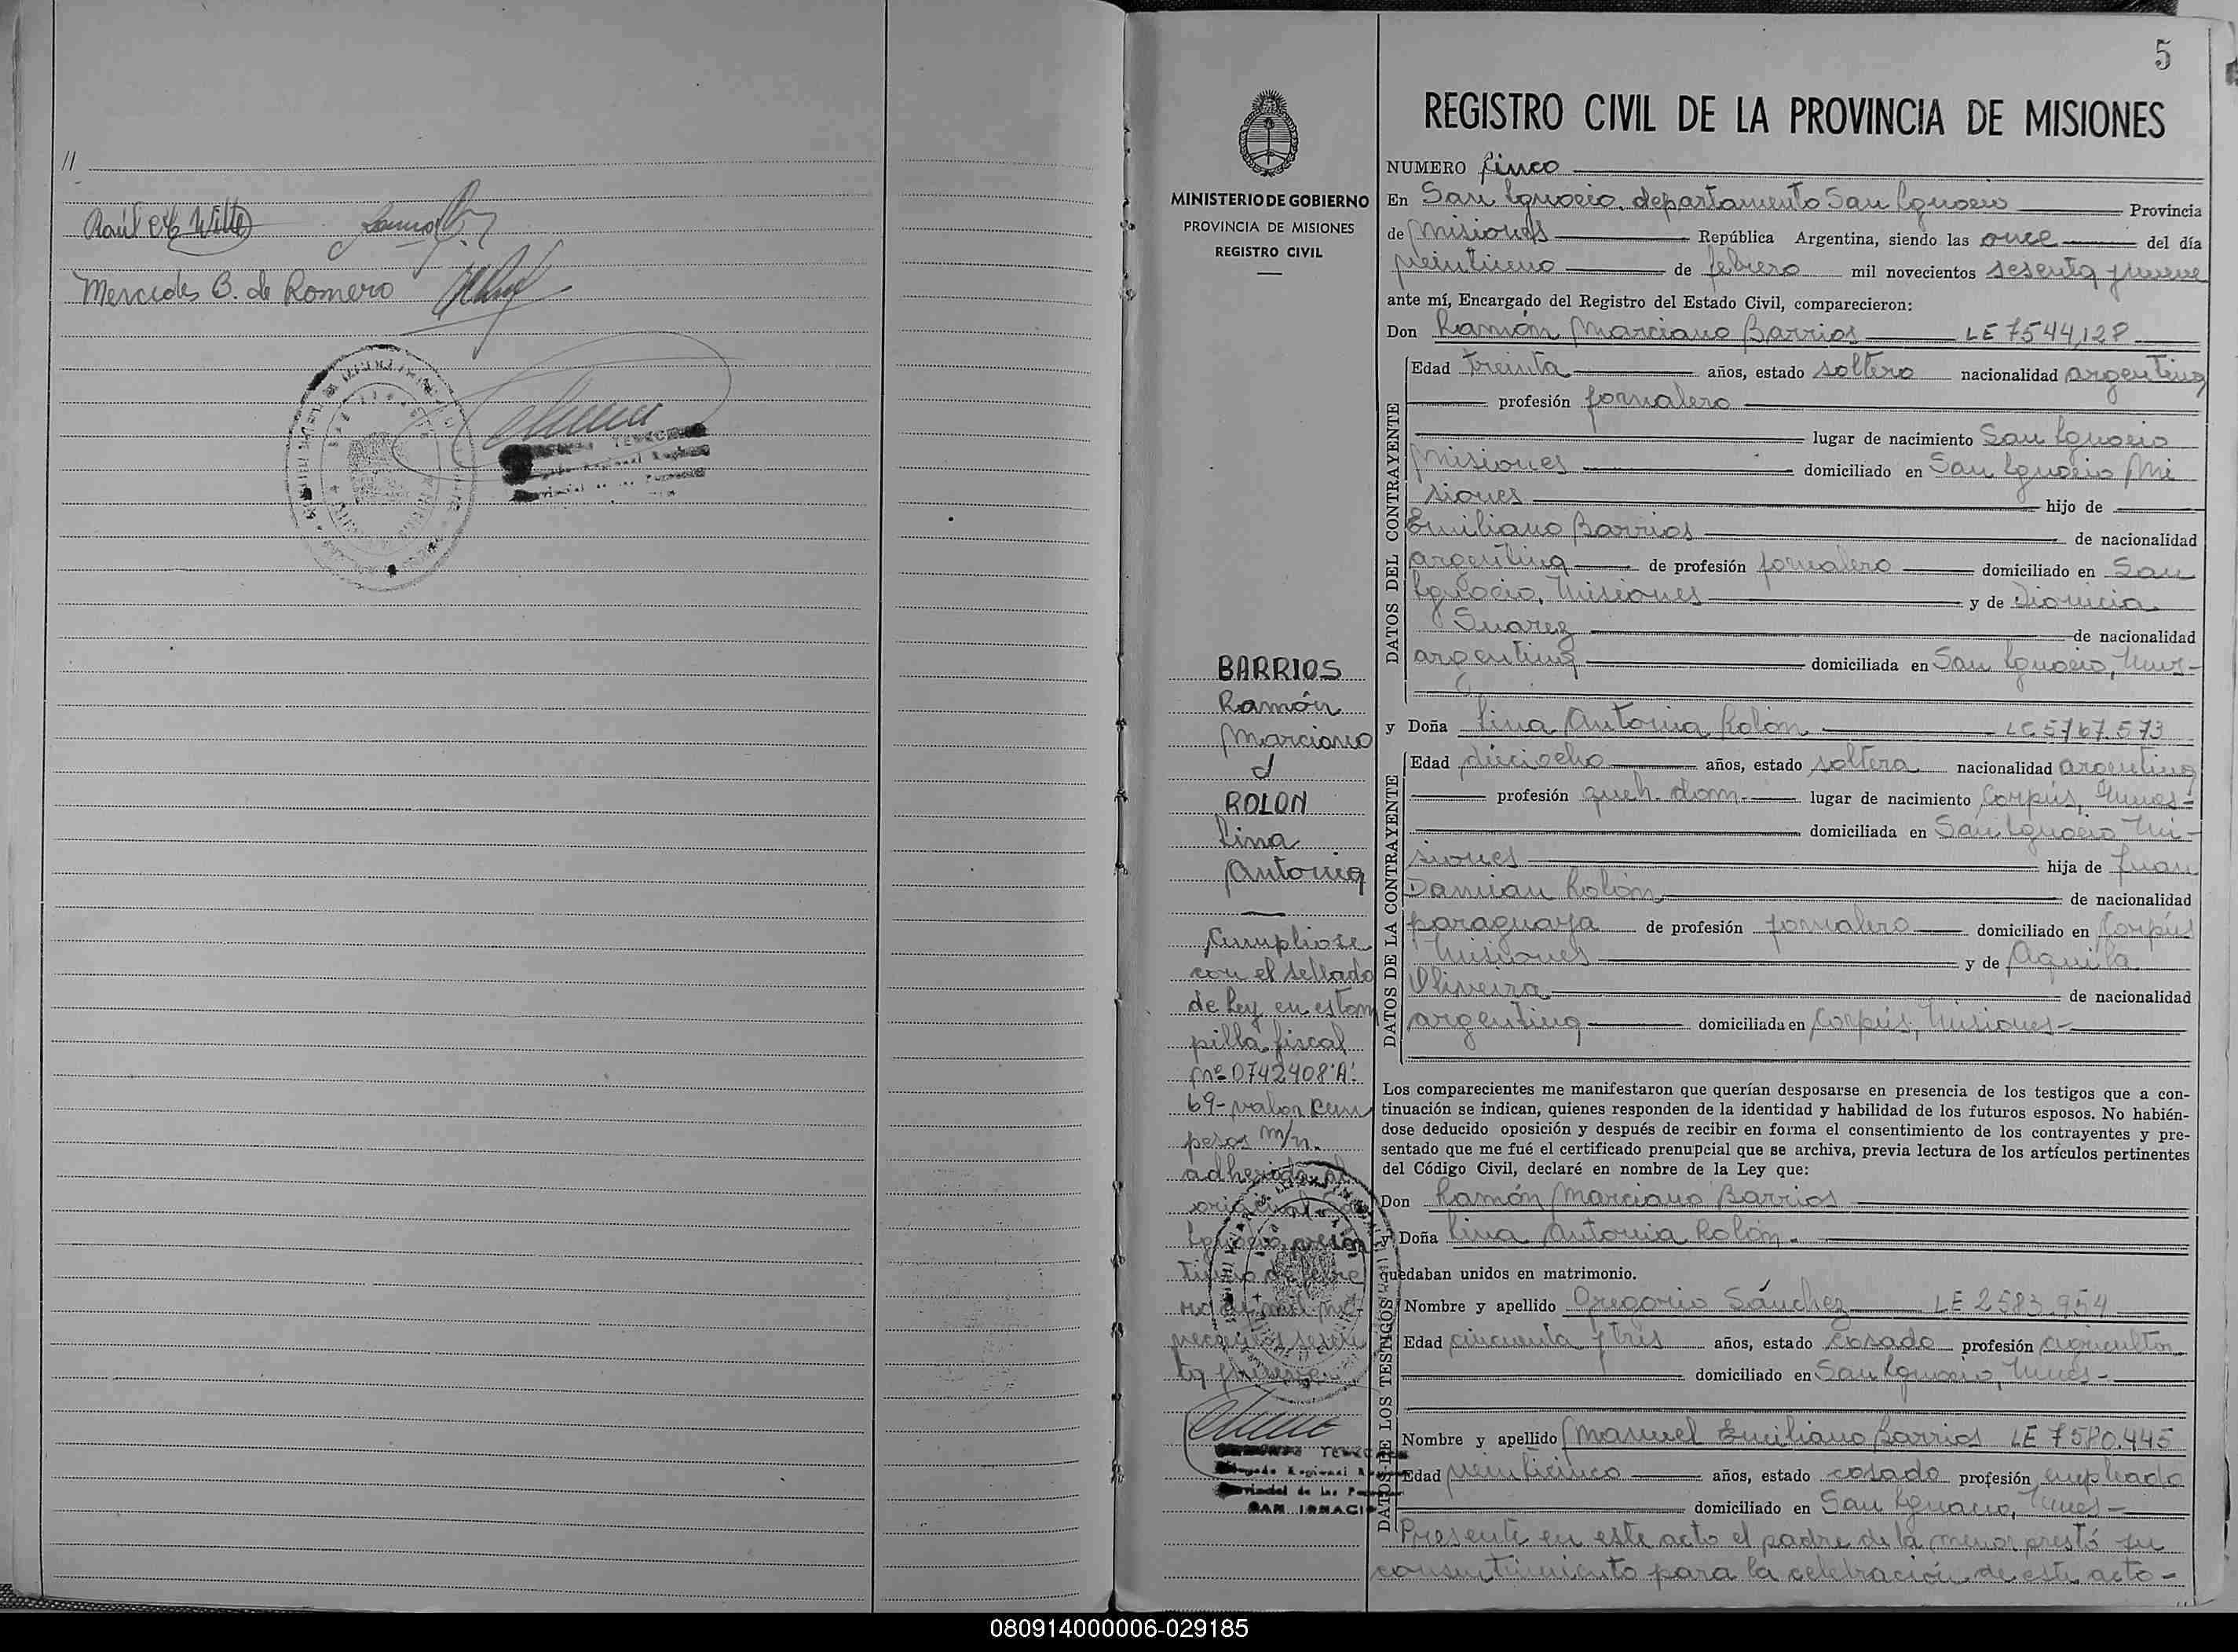 //
Raúl
Mercedes B. de Romero
5
REGISTRO CIVIL DE LA PROVINCIA DE MISIONES
MINISTERIO DE GOBIERNO
PROVINCIA DE MISIONES
REGISTRO CIVIL
BARRIOS
Ramón
Marciano
J
ROLON
Lina
Antonia
Cumpliose
con el sellado
de ley en estam
pilla fiscal
Nº 0742408 "A"
69- valor cien
pesos m/n.
adherida al
original
SAN IGNACIO
NUMERO Cinco
En San Ignacio, departamento San Ignacio Provincia
de Misiones República Argentina, siendo las once del día
veintiuno de febrero mil novecientos sesenta y nueve
ante mí, Encargado del Registro del Estado Civil, comparecieron:
Don Ramón Marciano Barrios LE 7544,128
DATOS DEL CONTRAYENTE
Edad treinta años, estado soltero nacionalidad argentina
profesión jornalero
lugar de nacimiento San Ignacio
Misiones domiciliado en San Ignacio Mi
siones hijo de
Emiliano Barrios de nacionalidad
argentina de profesión jornalero domiciliado en San
Ignacio, Misiones y de Dionicia
Suarez de nacionalidad
argentina domiciliada en San Ignacio, Mnes-
y Doña Lina Antonia Rolón LC 5767.573
DATOS DE LA CONTRAYENTE
Edad dieciocho años, estado soltera nacionalidad argentina
profesión queh. dom- lugar de nacimiento Corpús, Mnes-
domiciliada en San Ignacio Mi-
siones hija de Juan
Damian Rolón de nacionalidad
paraguaya de profesión jornalero domiciliado en Corpús
Misiones y de Aquila
Oliveira de nacionalidad
argentina domiciliada en Corpús, Misiones-
Los comparecientes me manifestaron que querían desposarse en presencia de los testigos que a con-
tinuación se indican, quienes responden de la identidad y habilidad de los futuros esposos. No habién-
dose deducido oposición y después de recibir en forma el consentimiento de los contrayentes y pre-
sentado que me fué el certificado prenupcial que se archiva, previa lectura de los artículos pertinentes
del Código Civil, declaré en nombre de la Ley que:
Don Ramón Marciano Barrios
y Doña Lina Antonia Rolón.
quedaban unidos en matrimonio.
DATOS DE LOS TESTIGOS
Nombre y apellido Gregorio Sánchez LE 2583.954
Edad cincuenta y tres años, estado casado profesión agricultor
domiciliado en San Ignacio, Mnes-
Nombre y apellido Manuel Emiliano Barrios LE 7580.445
Edad veinticinco años, estado casado profesión empleado
domiciliado en San Ignacio, Mnes-
Presente en este acto el padre de la menor prestó su
consentimiento para la celebración de este acto-
080914000006-029185